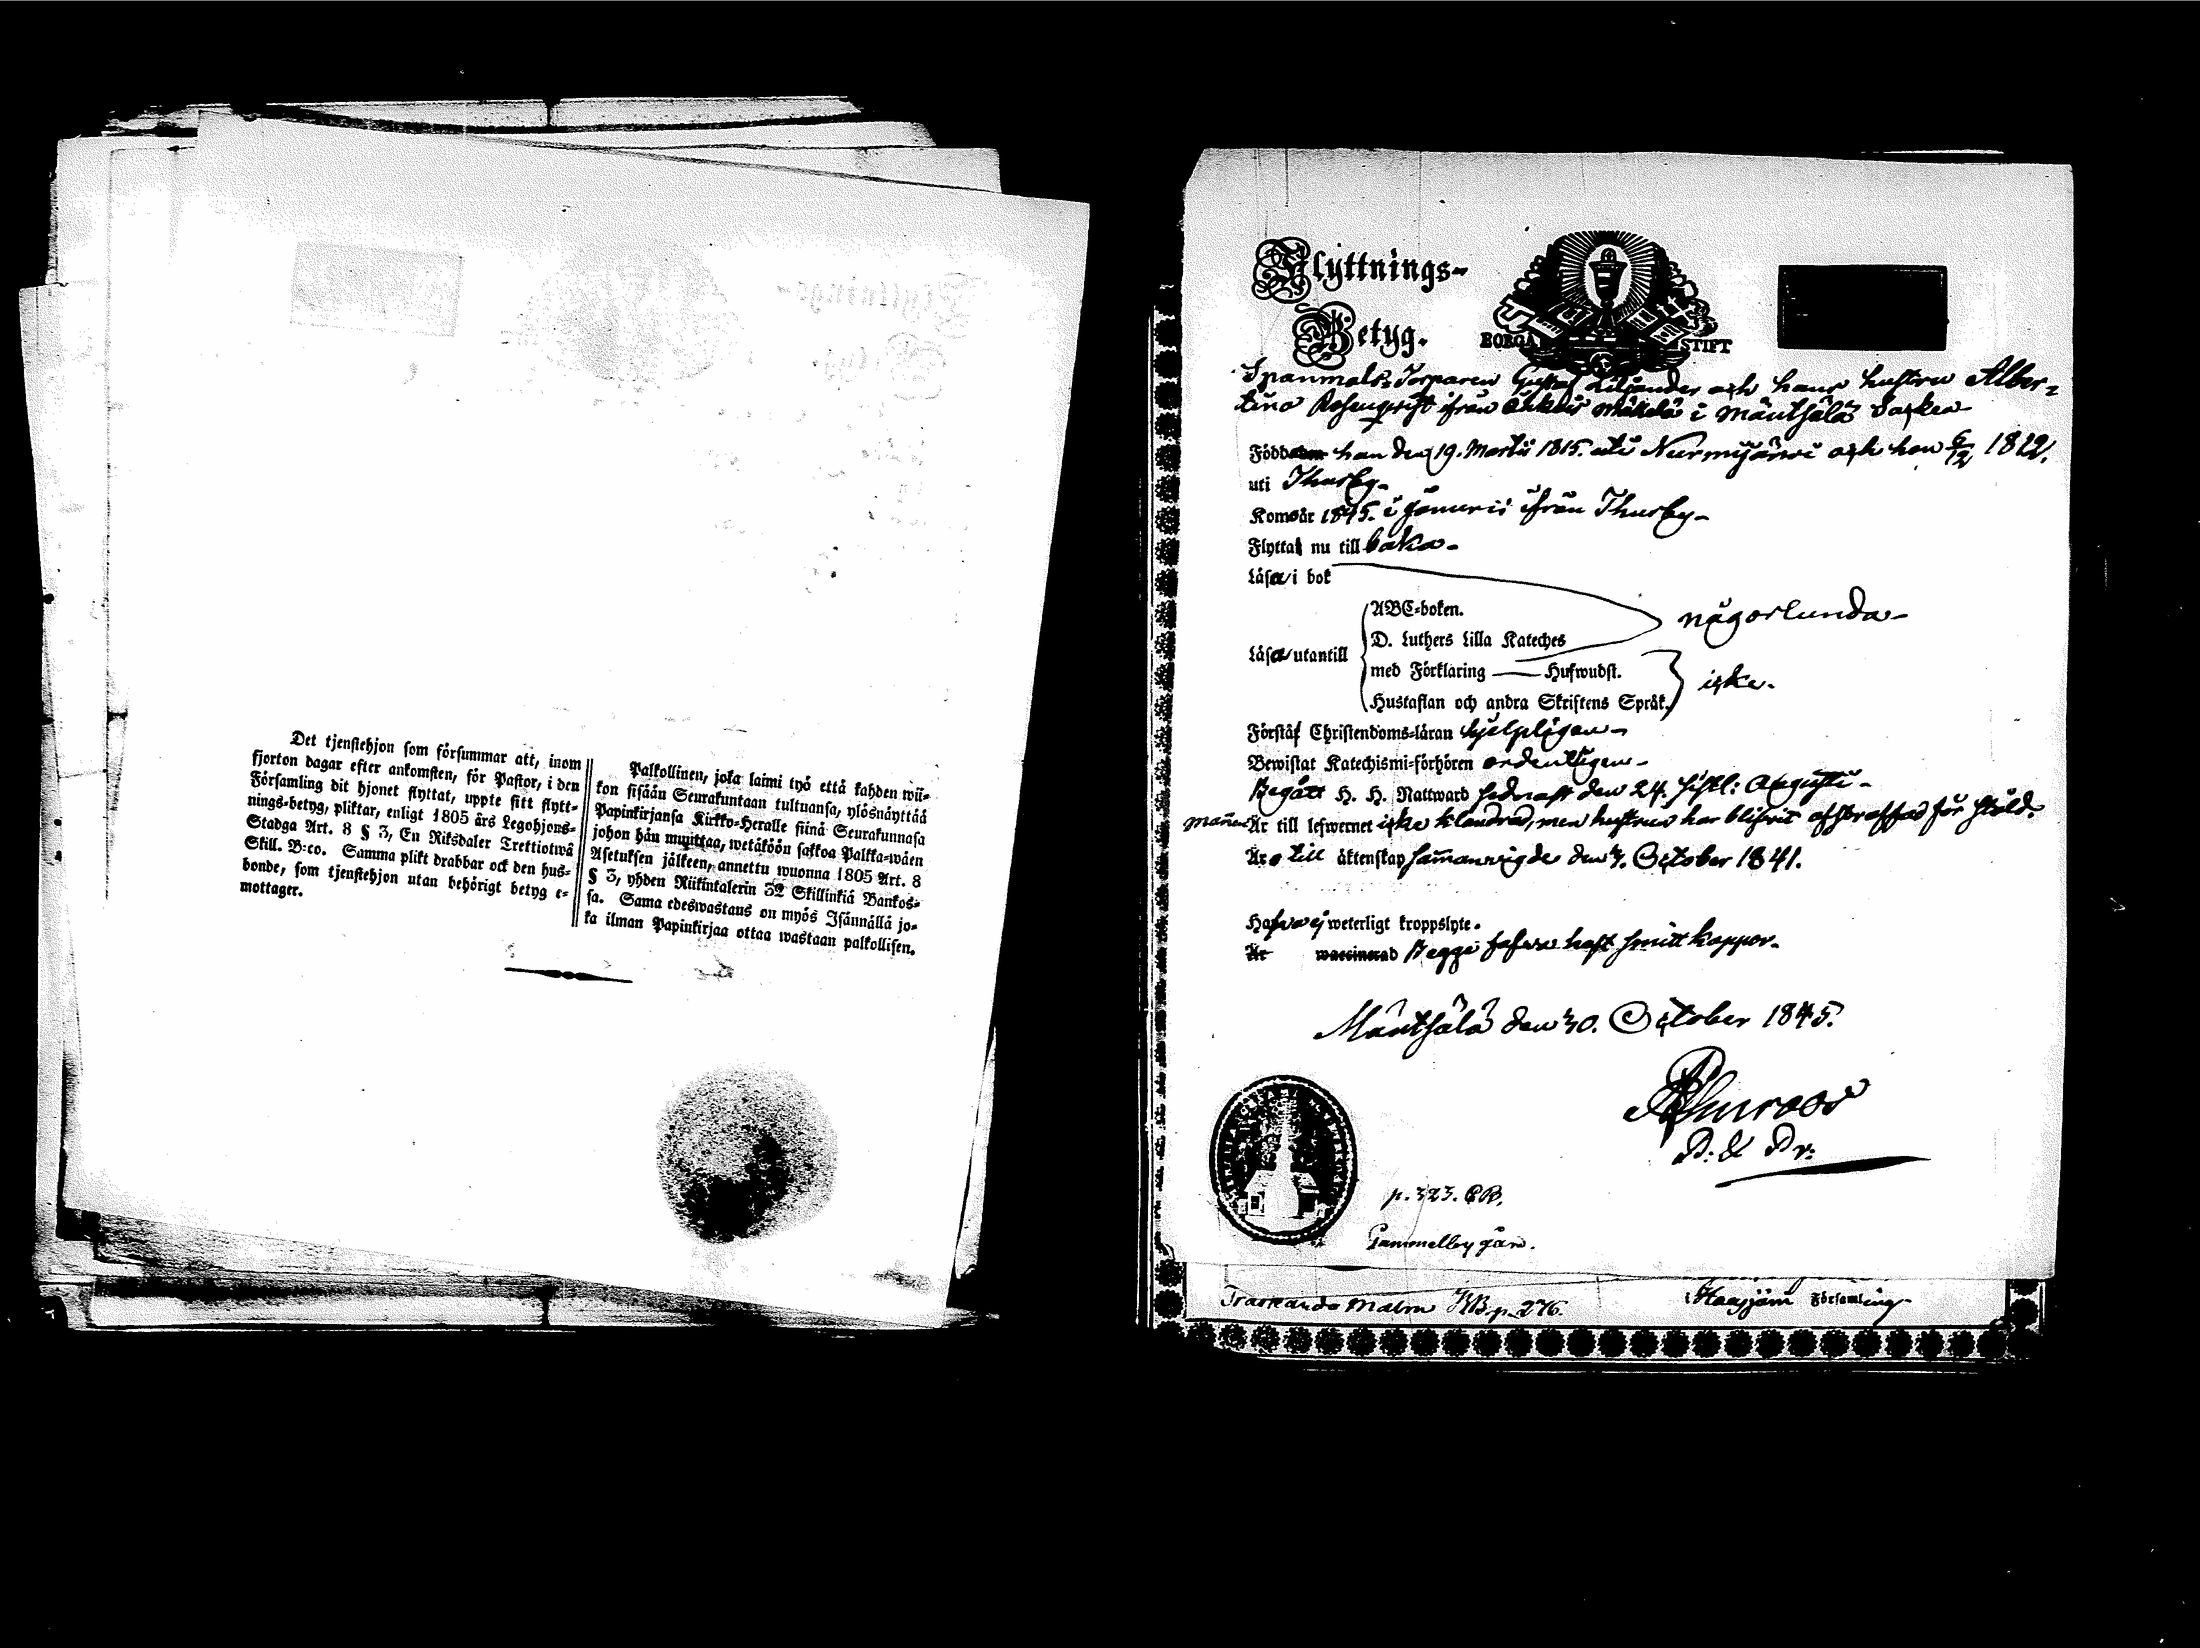 Det tjenstehjon som försummar att, inom
fjorton dagar efter ankomsten, för Pastor, i den
Församling dit hjonet flyttat, uppte sitt flytt-
nings-betyg, pliktar, enligt 1805 års Legohjons-
Stadga Art. 8 § 3, En Riksdaler Trettiotwå
Skill. B:co. Samma plikt drabbar ock den hus-
bonde, som tjenstehjon utan behörigt betyg e-
mottager.
Palkollinen, joka laimi lyö että kahden wii-
kon sisään Seurakuntaan tultuansa, ylösnäyttää
Papinkirjansa Kirkko-Herralle siinä Seurakunnasa
johon hän muuttaa, wetäköön sakkoa Palkka-wäen
Asetuksen jälkeen, annettu wuonna 1805 Art. 8
§ 3, yhden Riikintalerin 32 Skillinkiä Bankos-
sa. Sama edeswastaus on myös Isännällä jo-
ka ilman Papinkirjaa ottaa wastaan palkollisen.
Flyttnings-
Betyg.
BORGÅ STIFT
Spanmåls Torparen Gustaf Liljander och hans hustru Alber-
tina Rosenqvist ifrån Mäkelä i Mäntsälä Socken
Född han den 19. Martii 1815. uti Nurmijärwi och hon 6/12 1812.
uti Thusby-
Kom år 1845. i Januarii ifrån Thusby-
Flyttat nu till baka-
Läsa i bok
ABC-boken.
D. Luthers Lilla Kateches
någorlunda-
Läsa utantill
med Förklaring — Hufwudst.
Hustaflan och andra Skriftens Språk.
icke.
Förståf Christendoms-läran hjelpligen-
Bewistat Katechismi-förhören ordentligen-
Begått H. H. Nattward sednast den 24. sistl: Augusti-
mannen Är till lefwernet icke klandrad, men hustrun har blifvit afstraffad för stöld.
Är till äktenskap sammanvigde den 7. October 1841.
Hafwa ej weterligt kroppslyte.
Är waccinerad Begge hafwa haft smittkoppor-
Mäntsälä den 30. October 1845.
p. 323.
Gammelby gård.
Träskända Malm KB. p. 276.
Församling